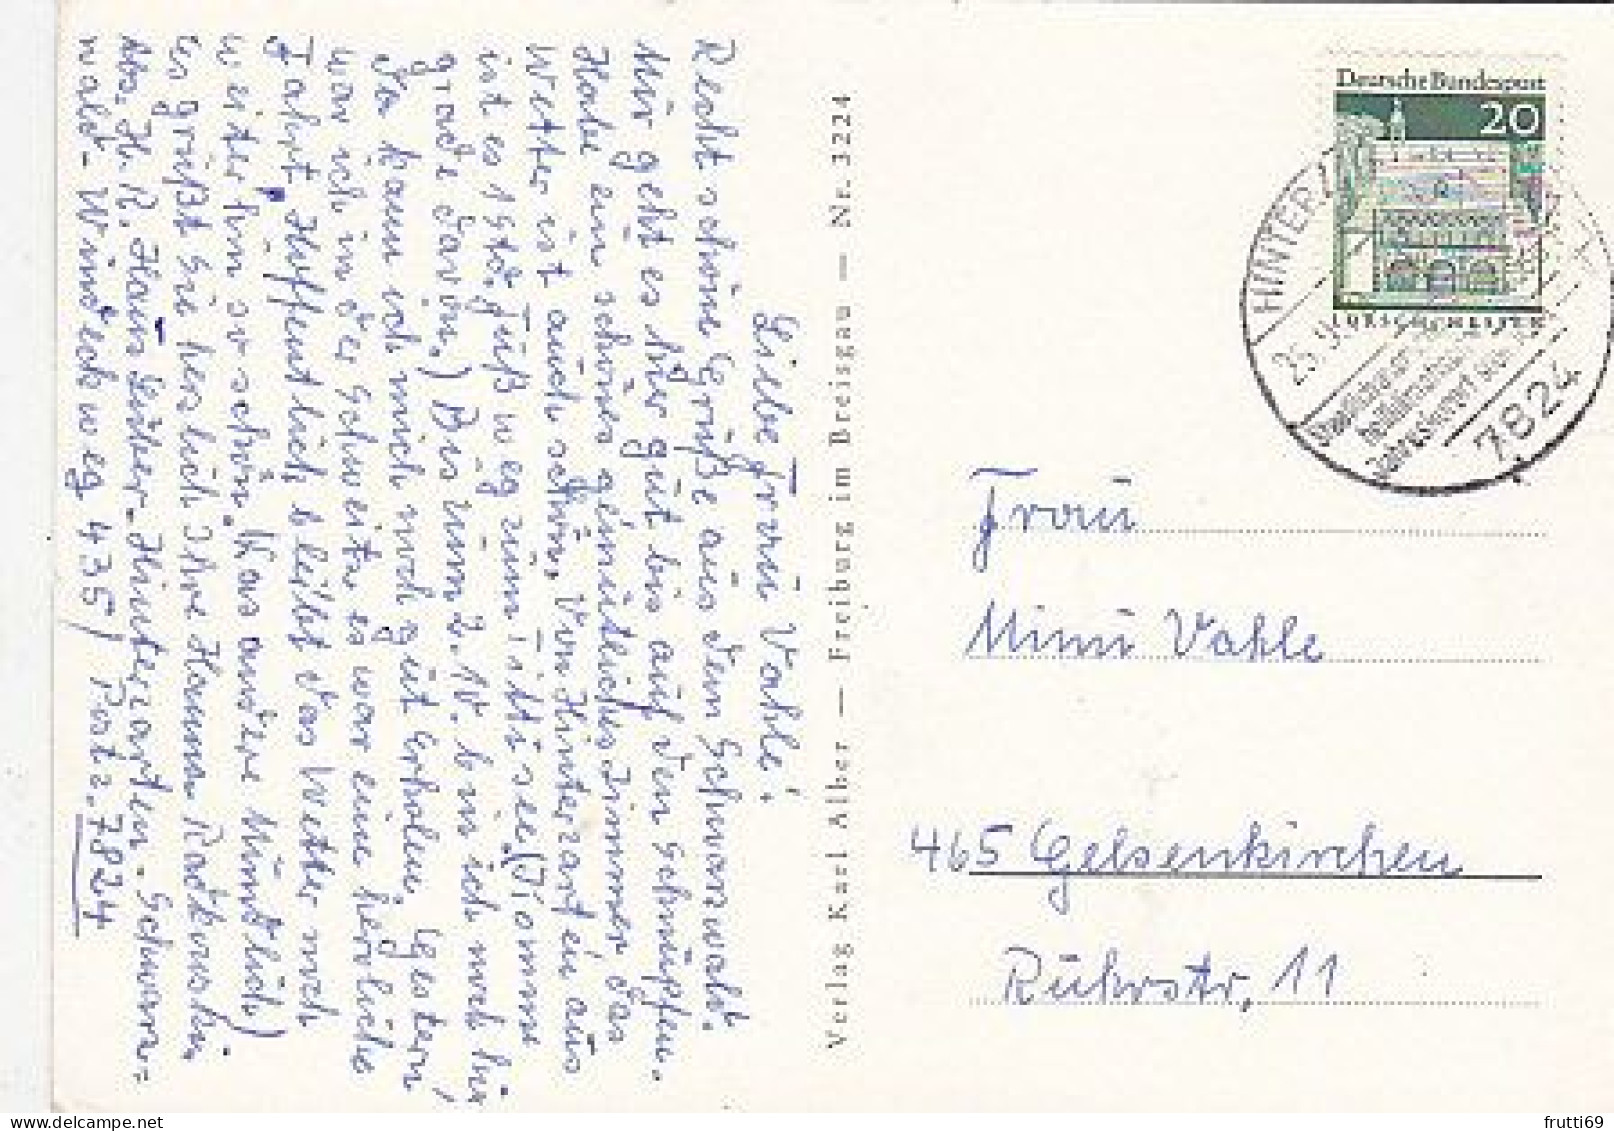 Liebe Frau Vahle!
Recht schöne Grüße aus dem Schwarzwald.
Mir geht es hier gut bis auf den Schnupfen.
Habe ein schönes gemütliches Zimmer, das
Wetter ist auch schön. Von Hinterzarten aus
ist es 1 Std. Fuß weg zum Titisee. (Komme
grade davon.) Bis zum 2.10. bin ich noch hir
da kann ich mich noch gut erholen. Gestern
war ich in der Schweitz es war eine herliche
Fahrt, Hoffentlich bleibt das Wetter noch
weiterhin so schön. (Das andere Mündlich)
es grüßt Sie herslich Ihre Hanna Radkowski
H. R. Haus Hinterzarten. Schwarz=
wald- Windeckweg 435/ Postz. 7824
Verlag Karl Alber — Freiburg im Breisgau — Nr. 3224
Deutsche Bundespost
20
LORSCH/HESSEN
HINTERZ
25.9
heilklimatischer
Jahreskurort
7824
Frau
Minni Vahle
465 Gelsenkirchen
Ruhrstr, 11
frutti69